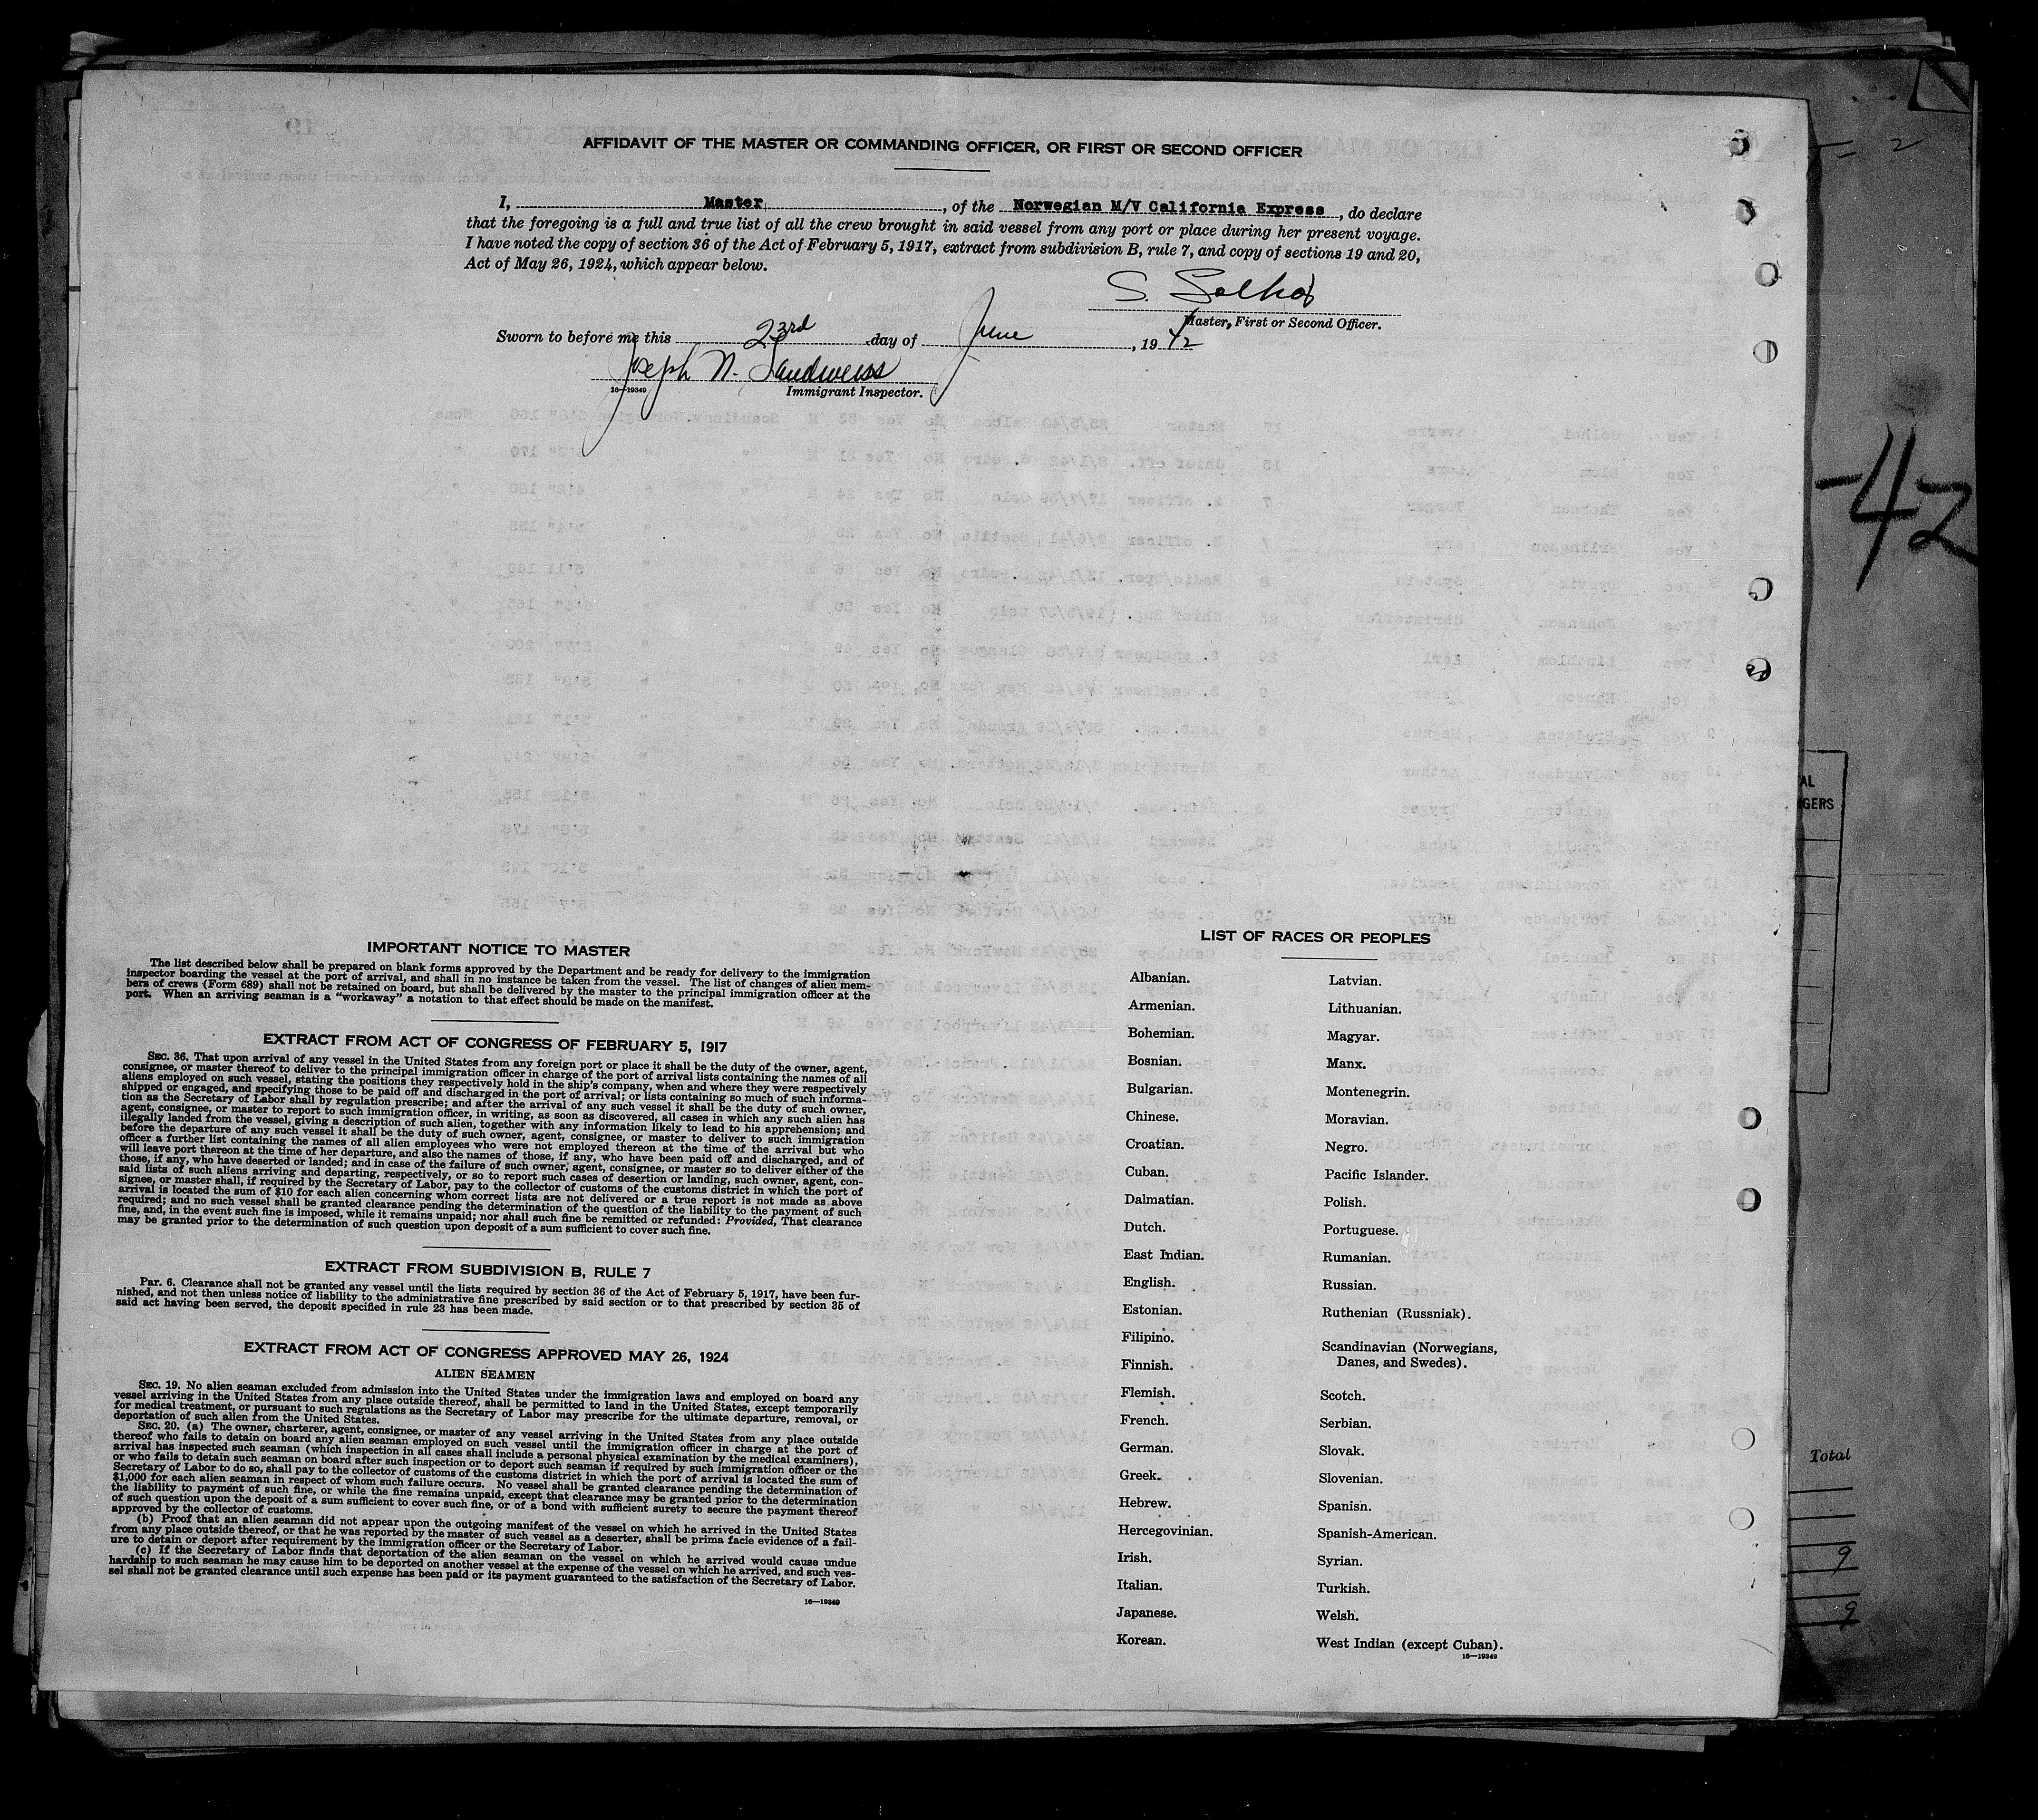 AFFIDAVIT OF THE MASTER OR COMMANDING OFFICER, OR FIRST OR SECOND OFFICER
I, Master, of the Norwegian M/V California Express, do declare
that the foregoing is a full and true list of all the crew brought in said vessel from any port or place during her present voyage.
I have noted the copy of section 36 of the Act of February 5, 1917, extract from subdivision B, rule 7, and copy of sections 19 and 20,
Act of May 26, 1924, which appear below.
S. Solhoi
Master, First or Second Officer.
Sworn to before me this 23rd day of June, 1942
Joseph N. Sandweiss
16—19349
Immigrant Inspector.
IMPORTANT NOTICE TO MASTER
The list described below shall be prepared on blank forms approved by the Department and be ready for delivery to the immigration
inspector boarding the vessel at the port of arrival, and shall in no instance be taken from the vessel. The list of changes of alien mem-
bers of crews (Form 689) shall not be retained on board, but shall be delivered by the master to the principal immigration officer at the
port. When an arriving seaman is a "workaway" a notation to that effect should be made on the manifest.
EXTRACT FROM ACT OF CONGRESS OF FEBRUARY 5, 1917
SEC. 36. That upon arrival of any vessel in the United States from any foreign port or place it shall be the duty of the owner, agent,
consignee, or master thereof to deliver to the principal immigration officer in charge of the port of arrival lists containing the names of all
aliens employed on such vessel, stating the positions they respectively hold in the ship's company, when and where they were respectively
shipped or engaged, and specifying those to be paid off and discharged in the port of arrival; or lists containing so much of such informa-
tion as the Secretary of Labor shall by regulation prescribe; and after the arrival of any such vessel it shall be the duty of such owner,
agent, consignee, or master to report to such immigration officer, in writing, as soon as discovered, all cases in which any such alien has
illegally landed from the vessel, giving a description of such alien, together with any information likely to lead to his apprehension; and
before the departure of any such vessel it shall be the duty of such owner, agent, consignee, or master to deliver to such immigration
officer a further list containing the names of all alien employees who were not employed thereon at the time of the arrival but who
will leave port thereon at the time of her departure, and also the names of those, if any, who have been paid off and discharged, and of
those, if any, who have deserted or landed; and in case of the failure of such owner, agent, consignee, or master so to deliver either of the
said lists of such aliens arriving and departing, respectively, or so to report such cases of desertion or landing, such owner, agent, con-
signee, or master shall, if required by the Secretary of Labor, pay to the collector of customs of the customs district in which the port of
arrival is located the sum of $10 for each alien concerning whom correct lists are not delivered or a true report is not made as above
required; and no such vessel shall be granted clearance pending the determination of the question of the liability to the payment of such
fine, and, in the event such fine is imposed, while it remains unpaid; nor shall such fine be remitted or refunded: Provided, That clearance
may be granted prior to the determination of such question upon deposit of a sum sufficient to cover such fine.
EXTRACT FROM SUBDIVISION B, RULE 7
Par. 6. Clearance shall not be granted any vessel until the lists required by section 36 of the Act of February 5, 1917, have been fur-
nished, and not then unless notice of liability to the administrative fine prescribed by said section or to that prescribed by section 35 of
said act having been served, the deposit specified in rule 23 has been made.
EXTRACT FROM ACT OF CONGRESS APPROVED MAY 26, 1924
ALIEN SEAMEN
SEC. 19. No alien seaman excluded from admission into the United States under the immigration laws and employed on board any
vessel arriving in the United States from any place outside thereof, shall be permitted to land in the United States, except temporarily
for medical treatment, or pursuant to such regulations as the Secretary of Labor may prescribe for the ultimate departure, removal, or
deportation of such alien from the United States.
SEC. 20. (a) The owner, charterer, agent, consignee, or master of any vessel arriving in the United States from any place outside
thereof who fails to detain on board any alien seaman employed on such vessel until the immigration officer in charge at the port of
arrival has inspected such seaman (which inspection in all cases shall include a personal physical examination by the medical examiners),
or who fails to detain such seaman on board after such inspection or to deport such seaman if required by such immigration officer or the
Secretary of Labor to do so, shall pay to the collector of customs of the customs district in which the port of arrival is located the sum of
$1,000 for each alien seaman in respect of whom such failure occurs. No vessel shall be granted clearance pending the determination of
the liability to payment of such fine, or while the fine remains unpaid, except that clearance may be granted prior to the determination
of such question upon the deposit of a sum sufficient to cover such fine, or of a bond with sufficient surety to secure the payment thereof
approved by the collector of customs.
(b) Proof that an alien seaman did not appear upon the outgoing manifest of the vessel on which he arrived in the United States
from any place outside thereof, or that he was reported by the master of such vessel as a deserter, shall be prima facie evidence of a fail-
ure to detain or deport after requirement by the immigration officer or the Secretary of Labor.
(c) If the Secretary of Labor finds that deportation of the alien seaman on the vessel on which he arrived would cause undue
hardship to such seaman he may cause him to be deported on another vessel at the expense of the vessel on which he arrived, and such ves-
sel shall not be granted clearance until such expense has been paid or its payment guaranteed to the satisfaction of the Secretary of Labor.
16—19349
LIST OF RACES OR PEOPLES
Albanian.
Armenian.
Bohemian.
Bosnian.
Bulgarian.
Chinese.
Croatian.
Cuban.
Dalmatian.
Dutch.
East Indian.
English.
Estonian.
Filipino.
Finnish.
Flemish.
French.
German.
Greek.
Hebrew.
Hercegovinian.
Irish.
Italian.
Japanese.
Korean.
Latvian.
Lithuanian.
Magyar.
Manx.
Montenegrin.
Moravian.
Negro.
Pacific Islander.
Polish.
Portuguese.
Rumanian.
Russian.
Ruthenian (Russniak).
Scandinavian (Norwegians,
Danes, and Swedes).
Scotch.
Serbian.
Slovak.
Slovenian.
Spanish.
Spanish-American.
Syrian.
Turkish.
Welsh.
West Indian (except Cuban).
16—19349
-42
AL
GERS
Total
9
9